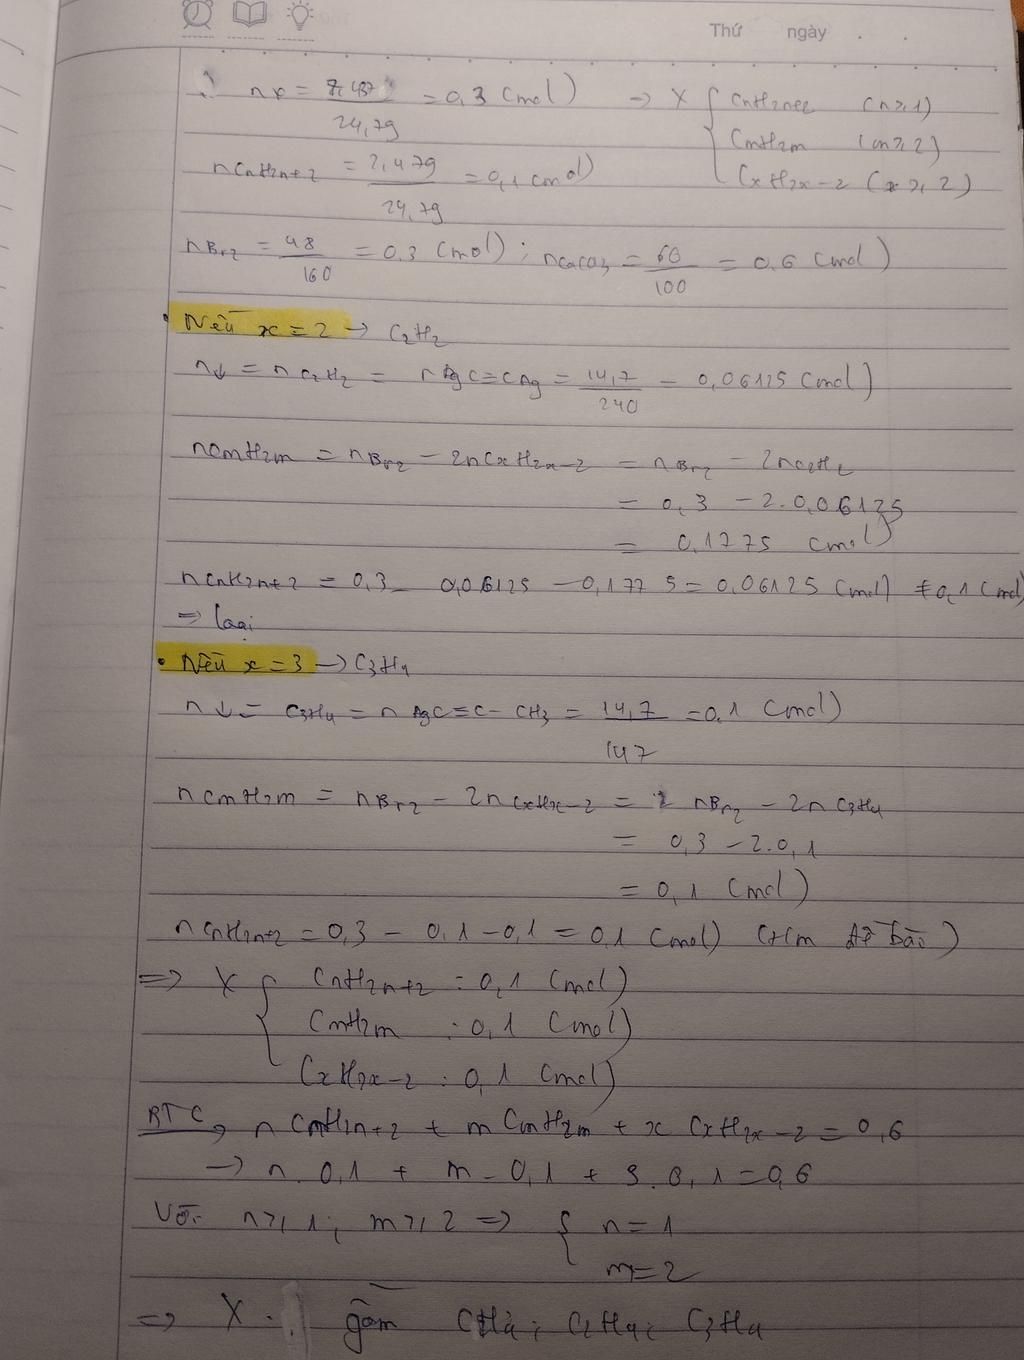 Thứ ngày . .
nX = 7,437/24,79 = 0,3 (mol) → X { CnH2n+2 (n ≥ 1)
CmH2m (m ≥ 2)
CxH2x-2 (x ≥ 2)
nCnH2n+2 = 2,479/24,79 = 0,1 (mol)
nBr2 = 48/160 = 0,3 (mol) ; nCaCO3 = 60/100 = 0,6 (mol)
• Nếu x = 2 → C2H2
n↓ = nC2H2 = nAgC≡CAg = 14,7/240 = 0,06125 (mol)
nCmH2m = nBr2 - 2nCxH2x-2 = nBr2 - 2nC2H2
= 0,3 - 2.0,06125
= 0,1775 (mol)
nCnH2n+2 = 0,3 - 0,06125 - 0,1775 = 0,06125 (mol) ≠ 0,1 (mol)
⇒ loại
• Nếu x = 3 → C3H4
n↓ = C3H4 = nAgC≡C-CH3 = 14,7/147 = 0,1 (mol)
nCmH2m = nBr2 - 2nCxH2x-2 = nBr2 - 2nC3H4
= 0,3 - 2.0,1
= 0,1 (mol)
nCnH2n+2 = 0,3 - 0,1 - 0,1 = 0,1 (mol) đề bài)
⇒ X { CnH2n+2 : 0,1 (mol)
CmH2m : 0,1 (mol)
CxH2x-2 : 0,1 (mol)
BTC, n CnH2n+2 + m CmH2m + x CxH2x-2 = 0,6
→ n. 0,1 + m. 0,1 + 3. 0,1 = 0,6
Với n ≥ 1 ; m ≥ 2 ⇒ { n = 1
m = 2
⇒ X gồm CH4 ; C2H4 ; C3H4